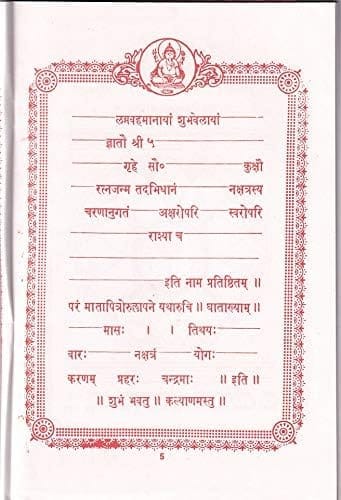 लग्नवहमानायां शुभवेलायां
ज्ञातौ श्री ५
गृहे सौ० कुक्षौ
रत्नजन्म तदभिधानं नक्षत्रस्य
चरणानुगतं अक्षरोपरि स्वरोपरि
राश्या च
इति नाम प्रतिष्ठितम् ॥
परं मातापित्रोरुलापने यथारुचि ॥ घाताख्याम् ॥
मासः । । तिथयः
वारः नक्षत्रं योगः
करणम् प्रहरः चन्द्रमाः ॥ इति ॥
॥ शुभं भवतु ॥ कल्याणमस्तु ॥
5